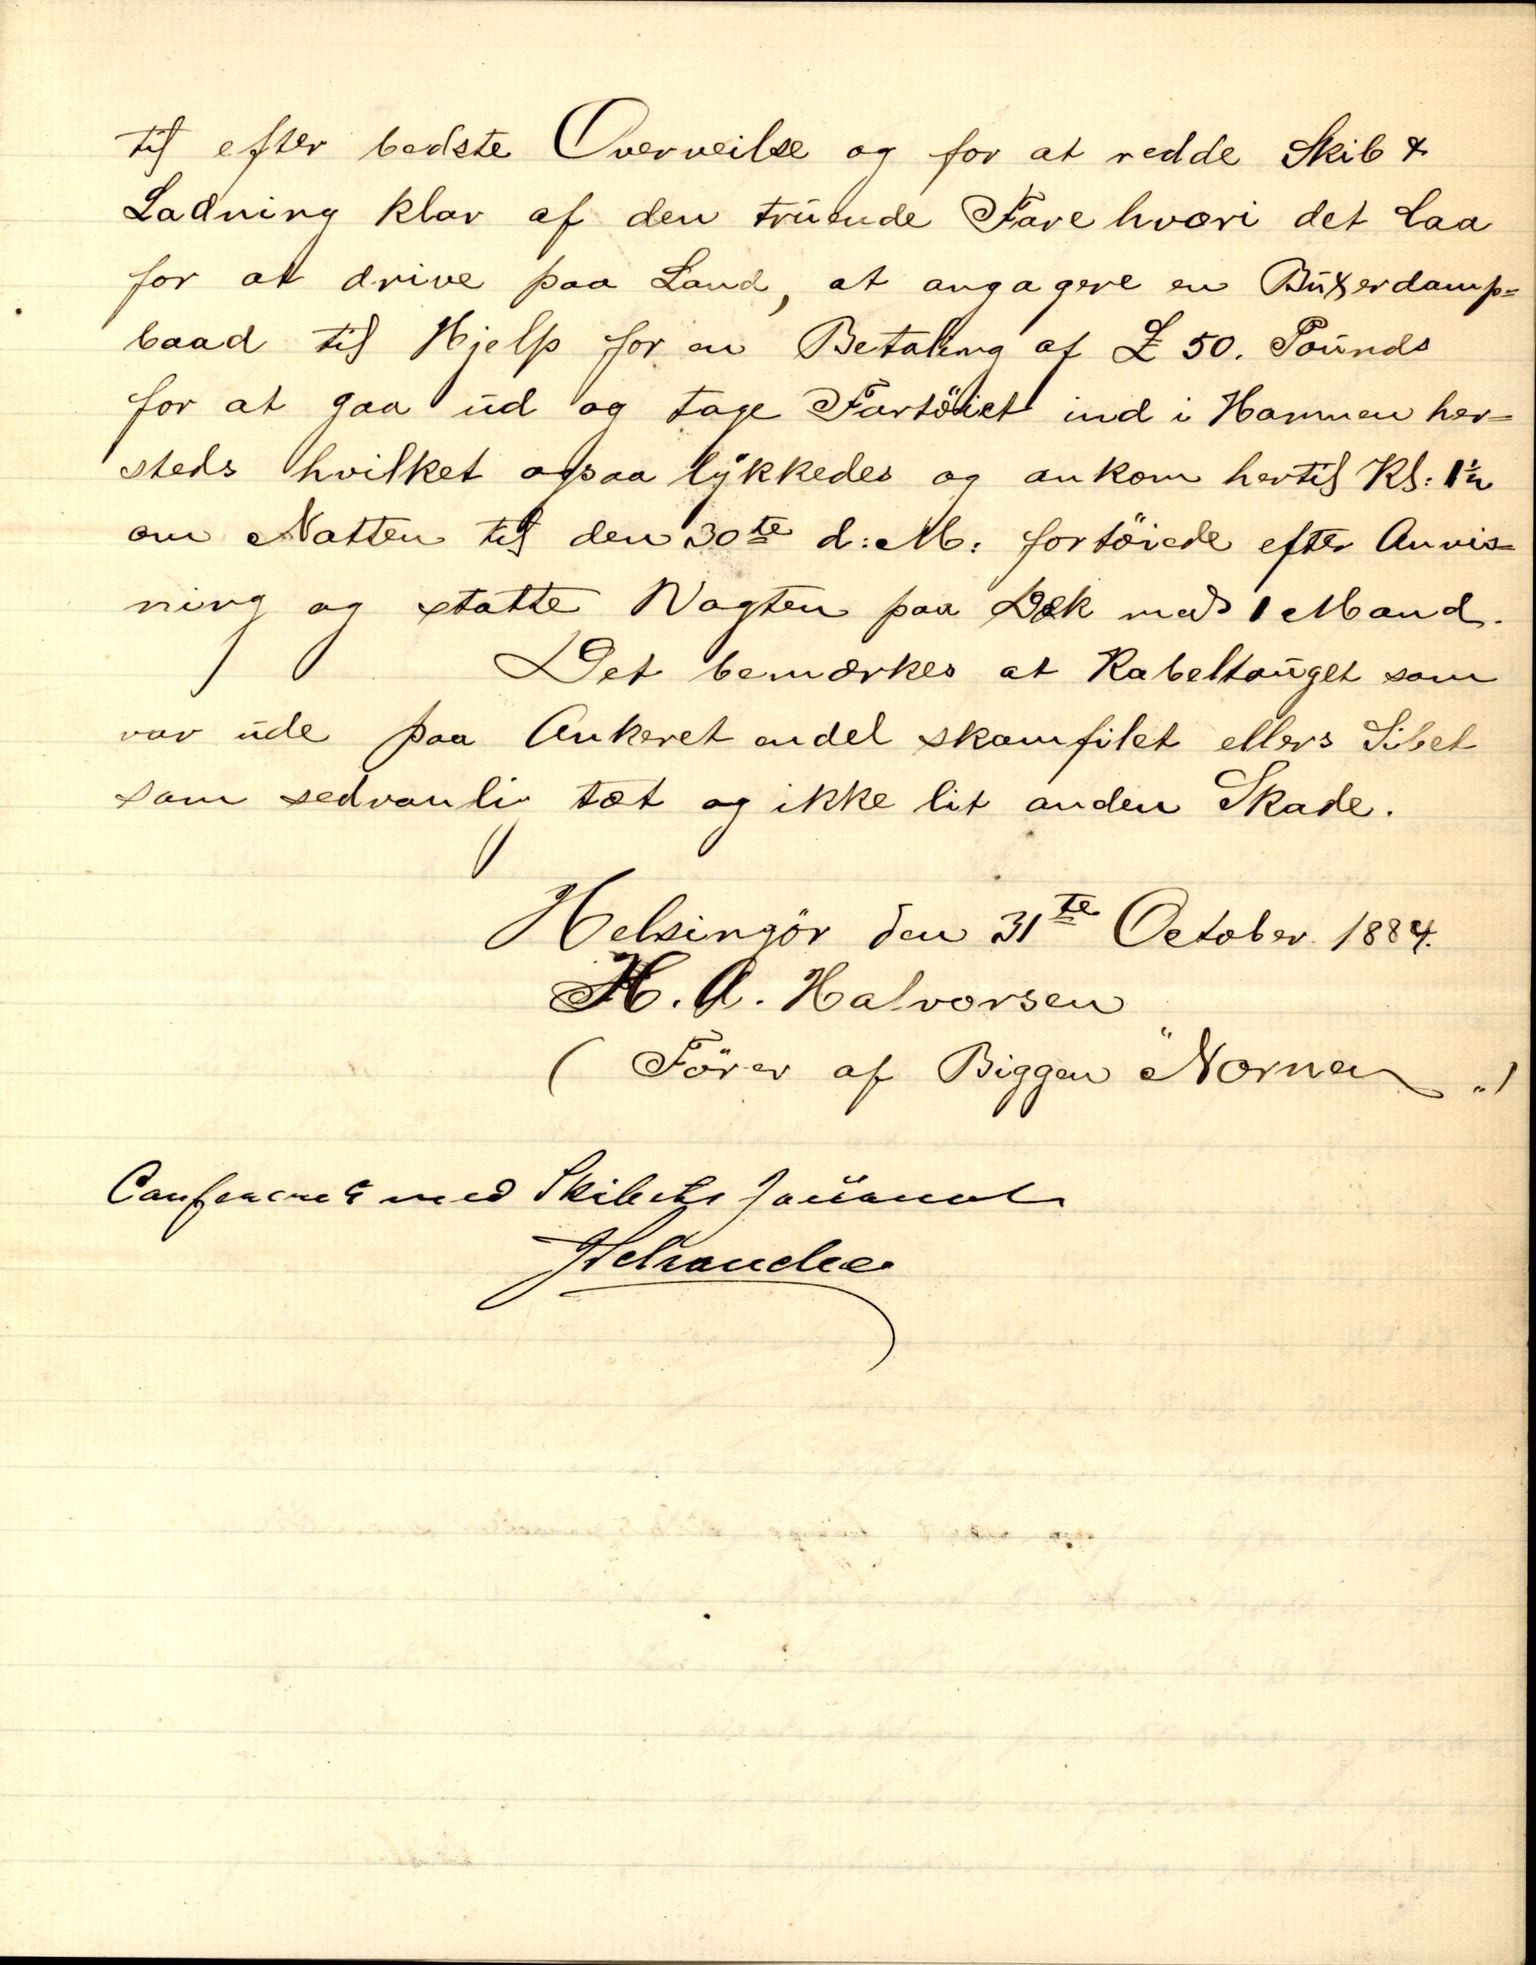 til efter bedste Overveilse og for at redde Skib &
Ladning klar af den truende Fare hvori det laa
for at drive paa Land, at angagere en Buxerdamp=
baad til Hjelp for en Betaling af £ 50. Pounds
for at gaa ud og tage Fartöiet ind i Havnen her=
steds hvilket ogsaa lykkedes og ankom hertil Kl: 1½
om Natten til den 30te d: M: fortöiede efter Anvis=
ning og satte Vagten paa Dæk med 1 Mand.
Det bemærkes at Kabeltouget som
var ude paa Ankeret endel skamfilet ellers Sibet
som sedvanlig tæt og ikke lit anden Skade.
Helsingör den 31te October 1884.
H. A. Halvorsen
( Förer af Biggen "Nornen „)
Confereret med Skibets Journal